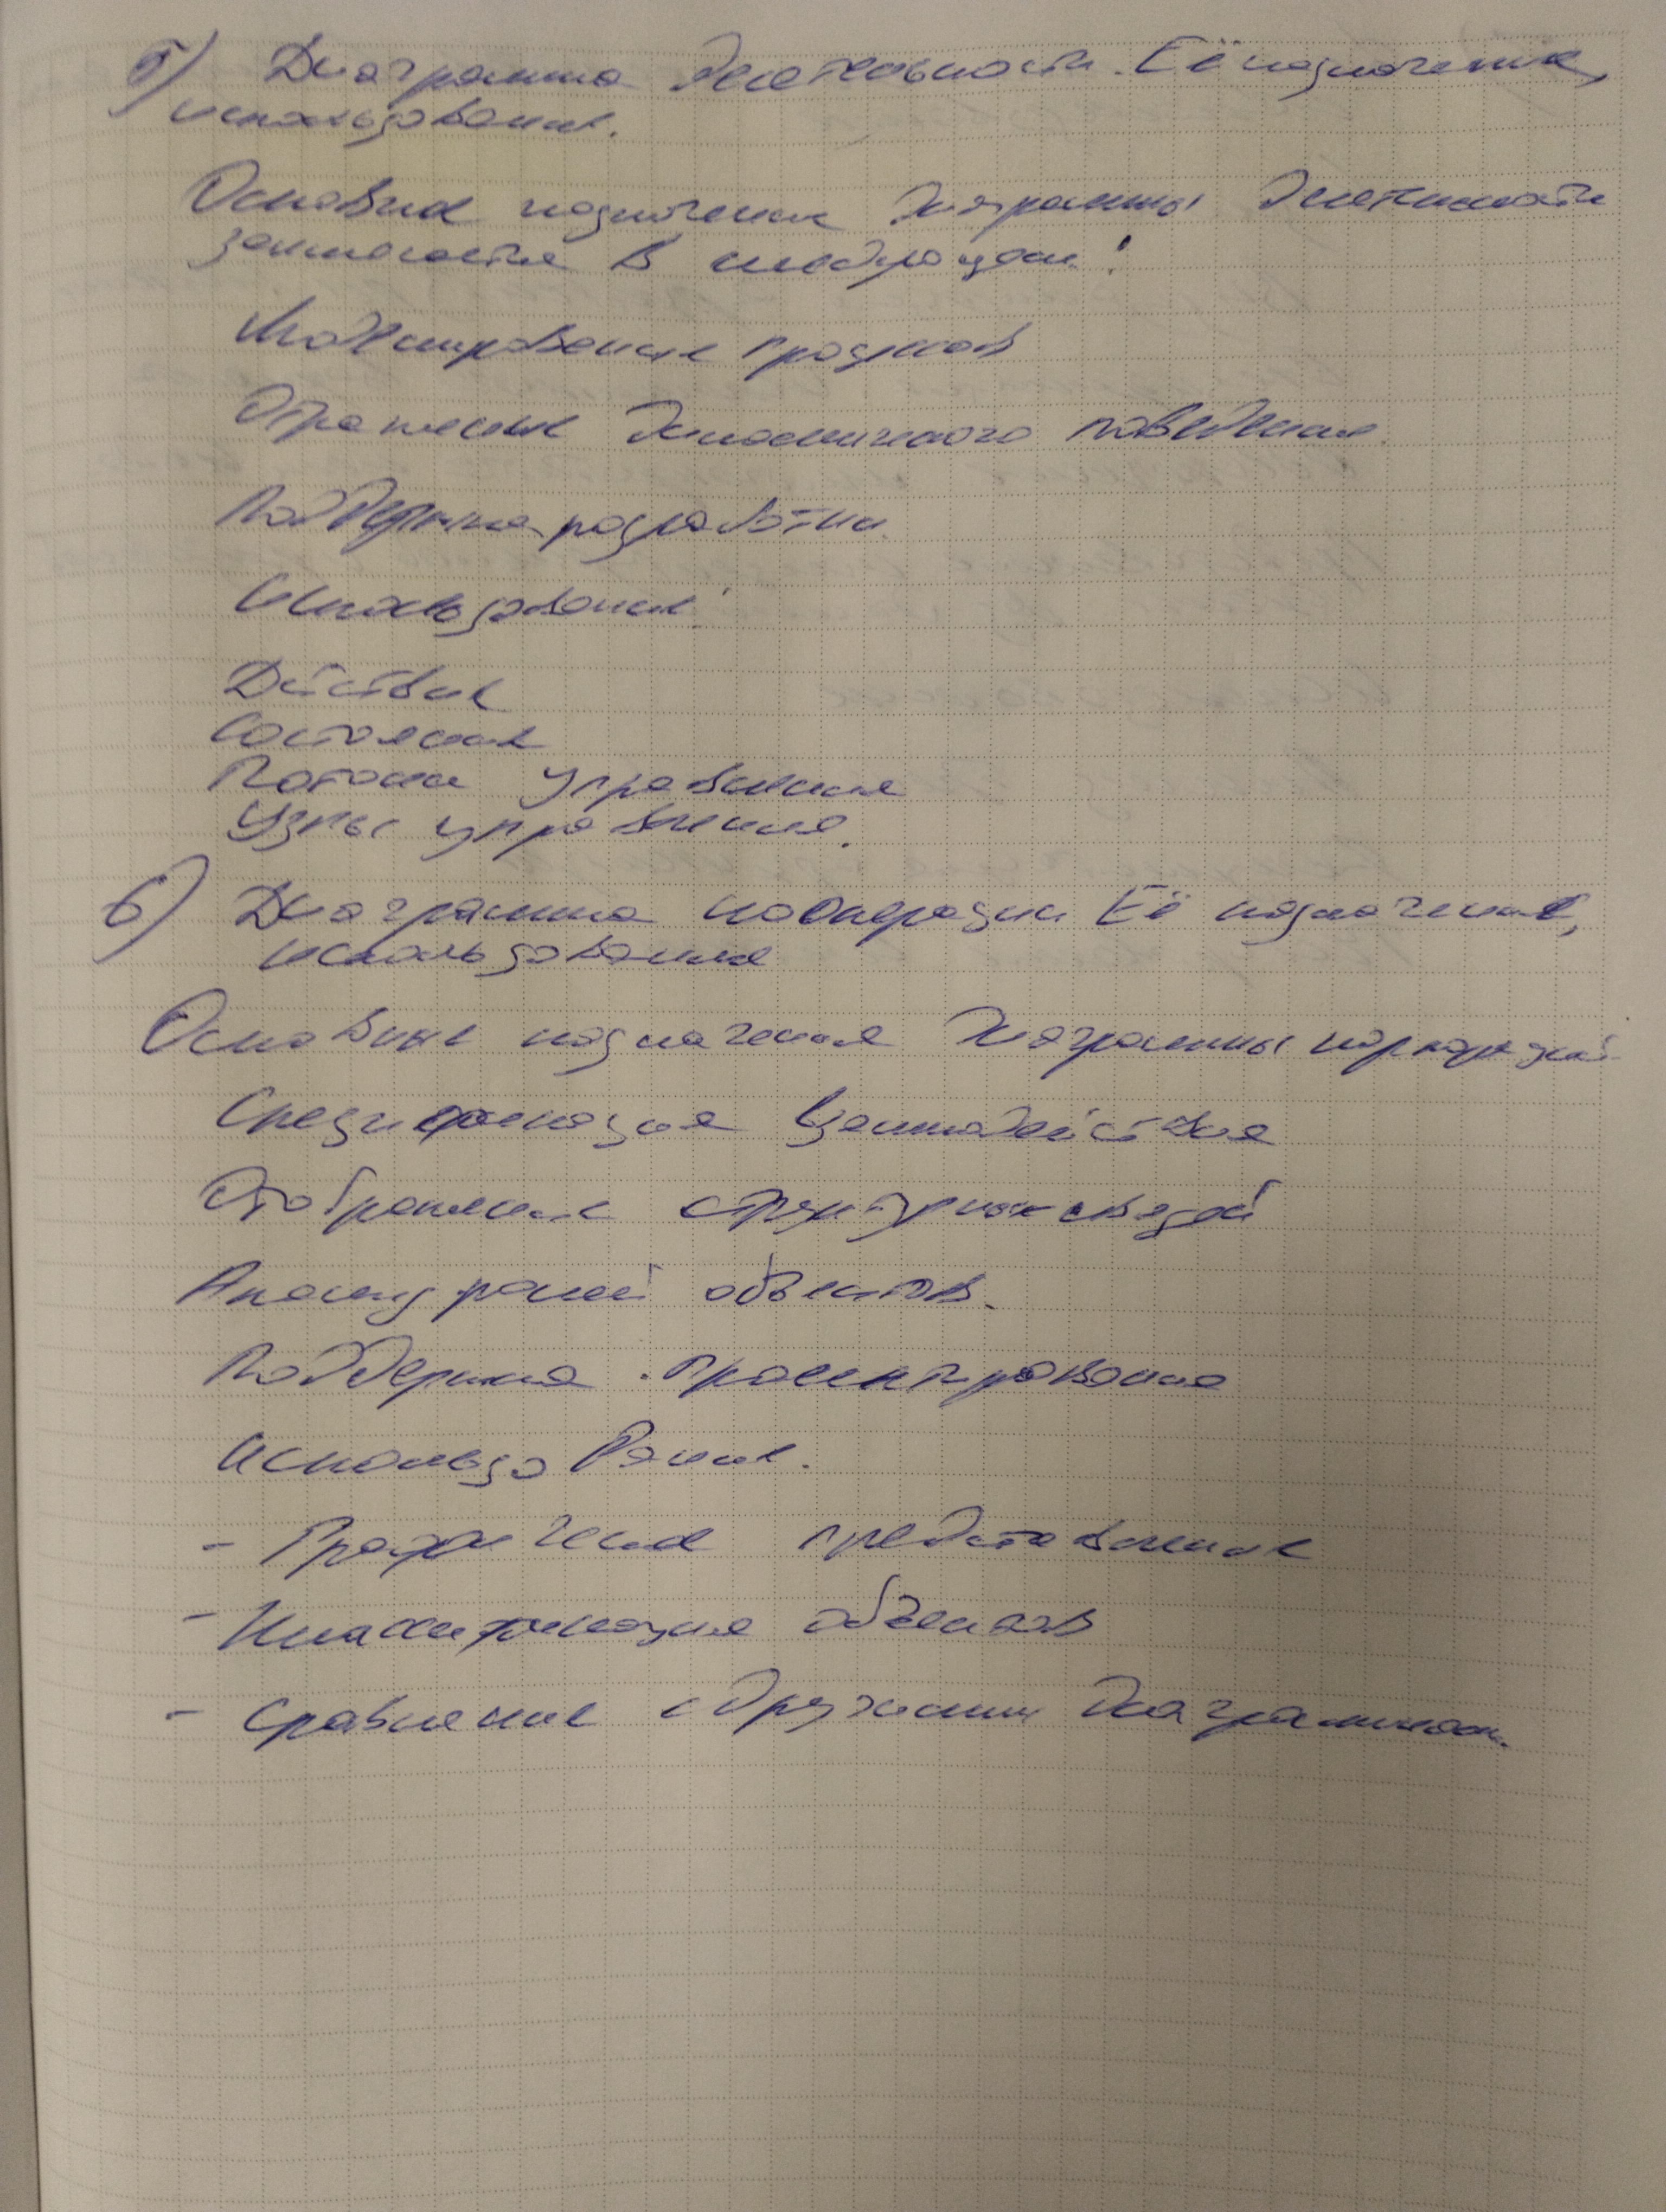 5) Диаграмма деятельности. Её назначение,
использование.
Основное назначение диаграммы деятельности
заключается в следующем:
Моделирование процессов
Отражение динамического поведения.
Поддержка разработки.
Использование:
Действие
Состояние
Потоки управления
Узлы управления.
6) Диаграмма кооперации Её назначение,
использование
Основные назначения диаграммы кооперации
Спецификация взаимодействия
Отображение структурных связей
Анализ ролей объектов.
Поддержка проектирования
Использование.
- Графическое представление
- Классификация объектов
- Сравнение с другими диаграммами.